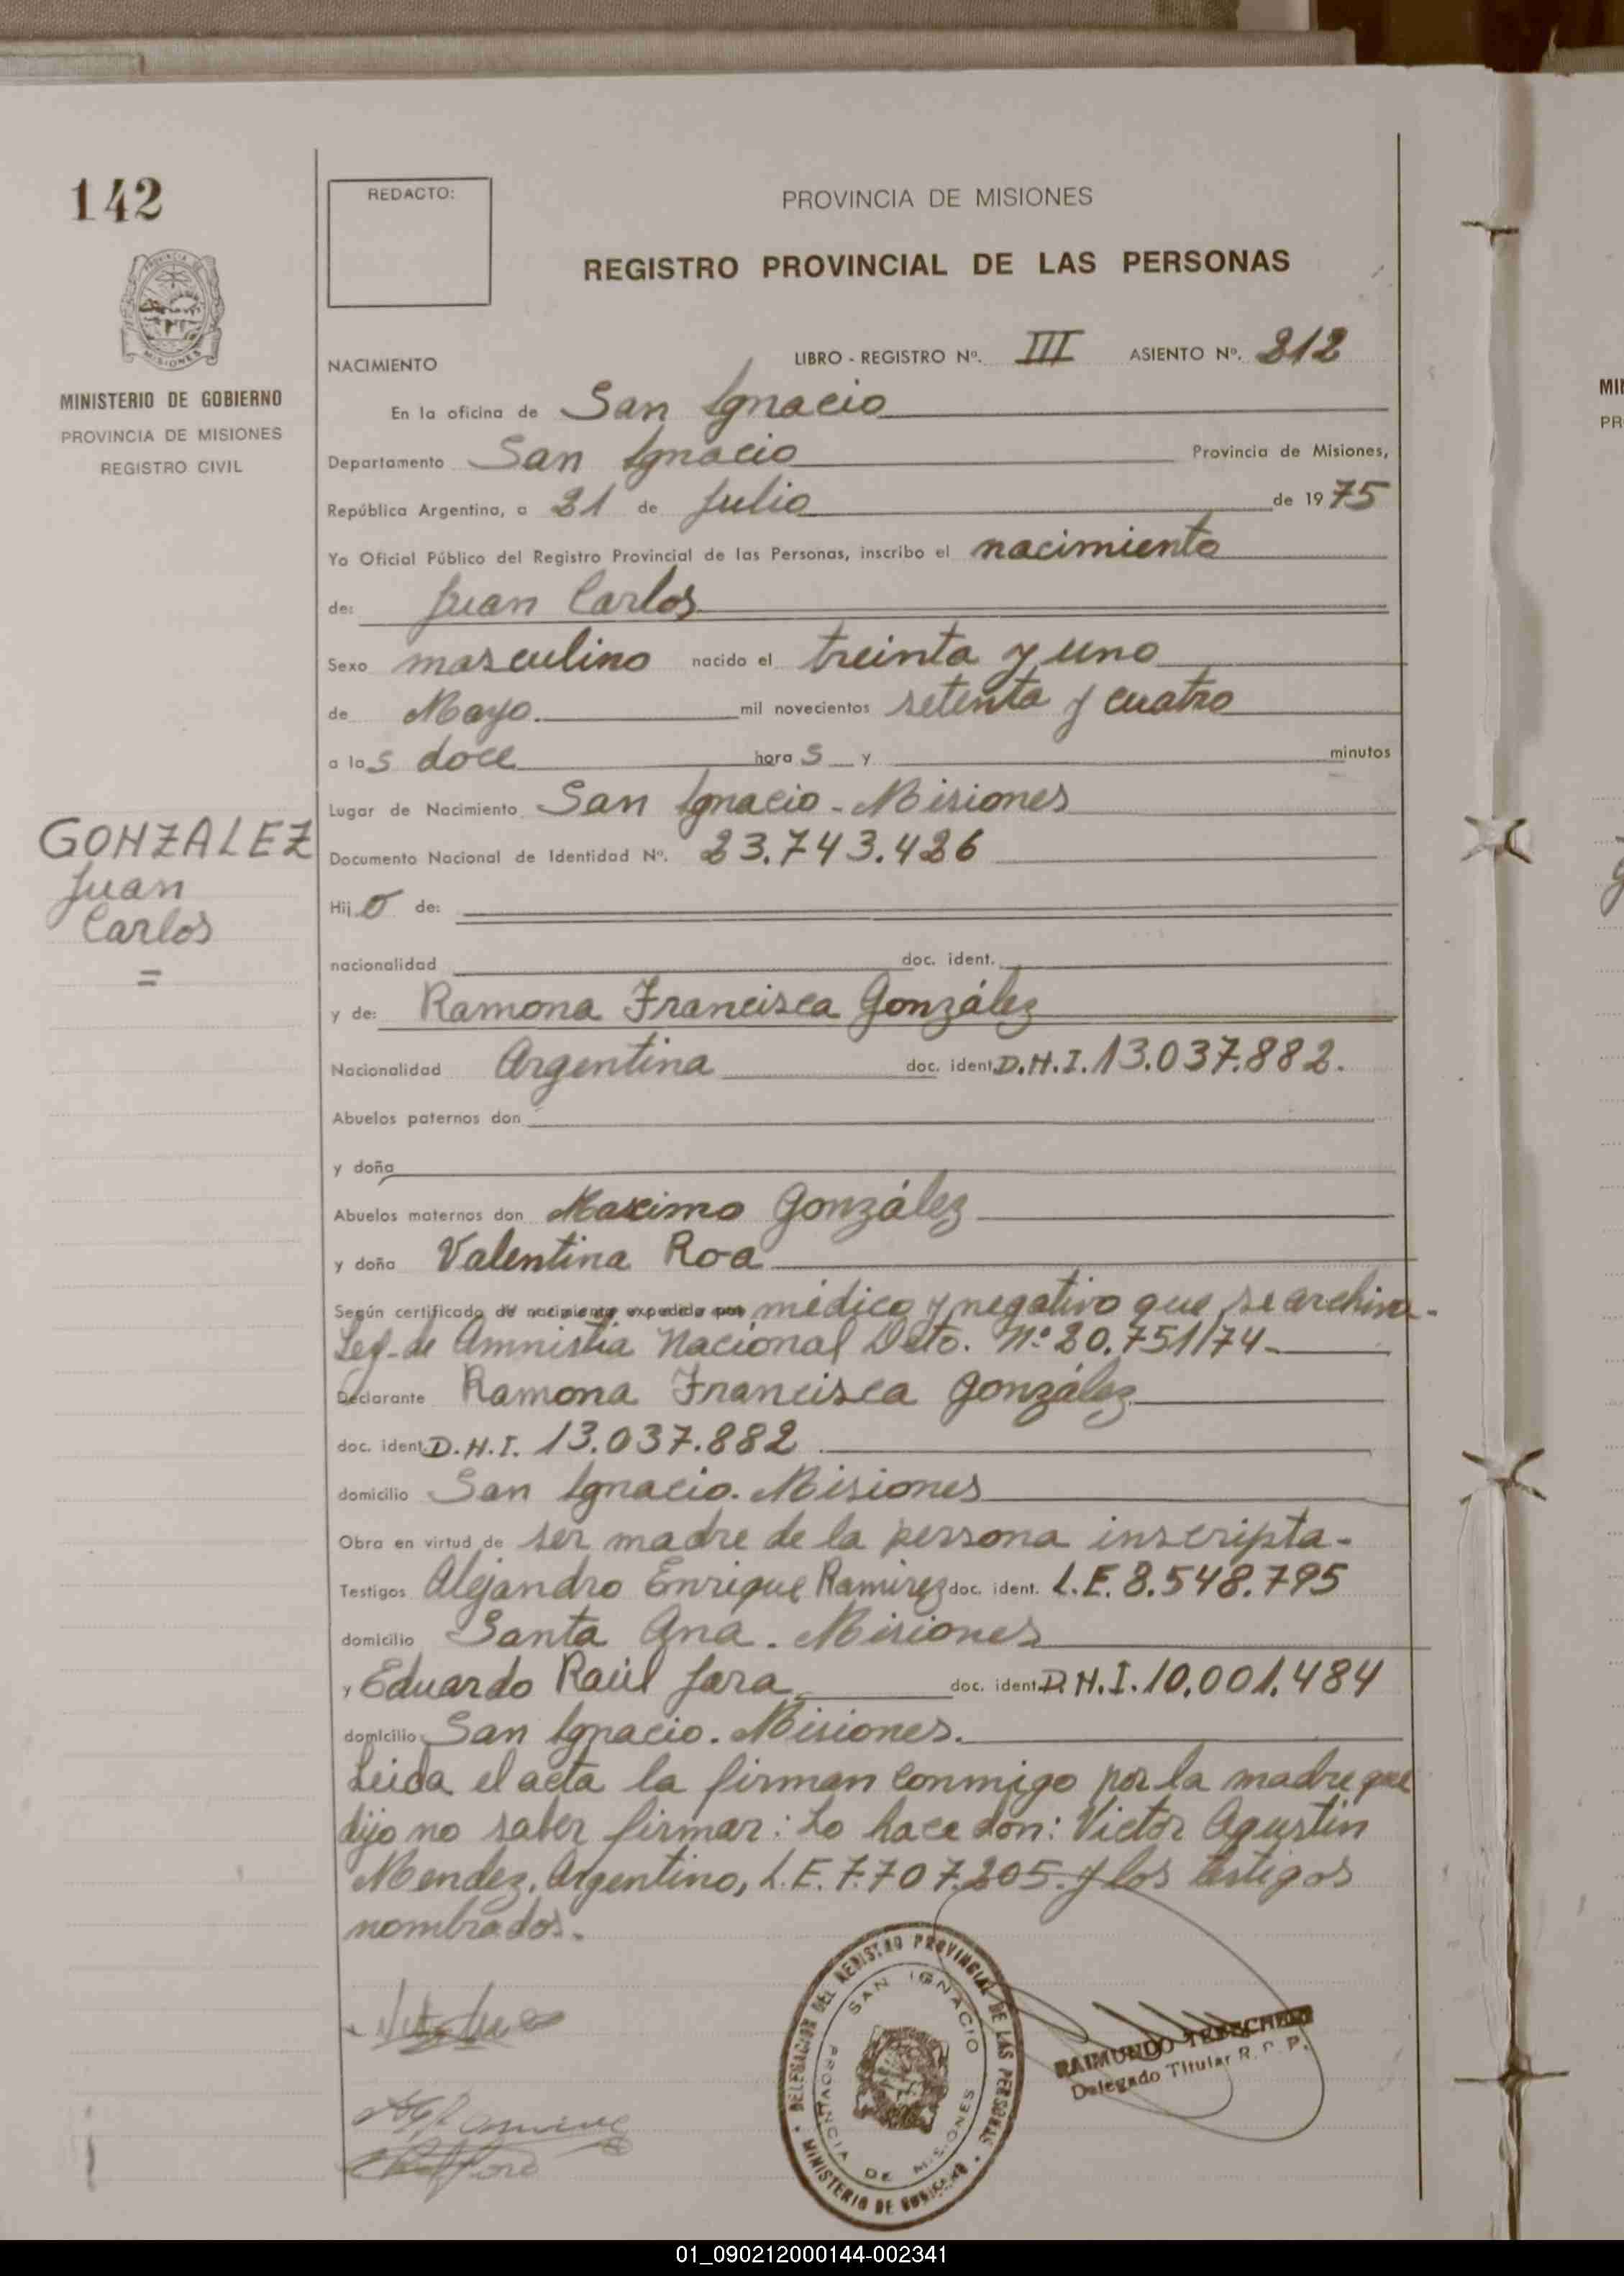 142
REDACTO:
PROVINCIA DE MISIONES
REGISTRO PROVINCIAL DE LAS PERSONAS
MINISTERIO DE GOBIERNO
PROVINCIA DE MISIONES
REGISTRO CIVIL
NACIMIENTO LIBRO - REGISTRO Nº. III ASIENTO Nº. 212
En la oficina de San Ignacio
Departamento San Ignacio Provincia de Misiones,
República Argentina, a 21 de Julio de 1975
Yo Oficial Público del Registro Provincial de las Personas, inscribo el nacimiento
de: Juan Carlos
Sexo masculino nacido el treinta y uno
de Mayo. mil novecientos setenta y cuatro
a las doce horas y minutos
Lugar de Nacimiento San Ignacio - Misiones
GONZALEZ
Juan
Carlos
=
Documento Nacional de Identidad Nº. 23.743.426
Hijo de:
nacionalidad doc. ident.
y de: Ramona Francisca González
Nacionalidad Argentina doc. ident. D.N.I. 13.037.882.
Abuelos paternos don
y doña
Abuelos maternos don Maximo González
y doña Valentina Roa
Según certificado de nacimiento expedido por médico y negativo que se archiva.
Ley de Amnistia Nacional Dcto. Nº 20.751/74-
Declarante Ramona Francisca González
doc. ident. D.N.I. 13.037.882
domicilio San Ignacio. Misiones
Obra en virtud de ser madre de la persona inscripta-
Testigos Alejandro Enrique Ramirez doc. ident. L.E. 8.548.795
domicilio Santa Ana. Misiones
y Eduardo Raúl Jara doc. ident. D.N.I. 10.001.484
domicilio San Ignacio. Misiones.
Leida el acta la firman conmigo por la madre que
dijo no saber firmar: Lo hace don: Victor Agustin
Mendez, Argentino, L.E. 7.707.205. y los testigos
nombrados.
DELEGACION DEL REGISTRO PROVINCIAL DE LAS PERSONAS
MINISTERIO DE GOBIERNO
SAN IGNACIO
PROVINCIA DE MISIONES
RAIMUNDO
Delegado Titular R. P.
MI
PR
01_090212000144-002341